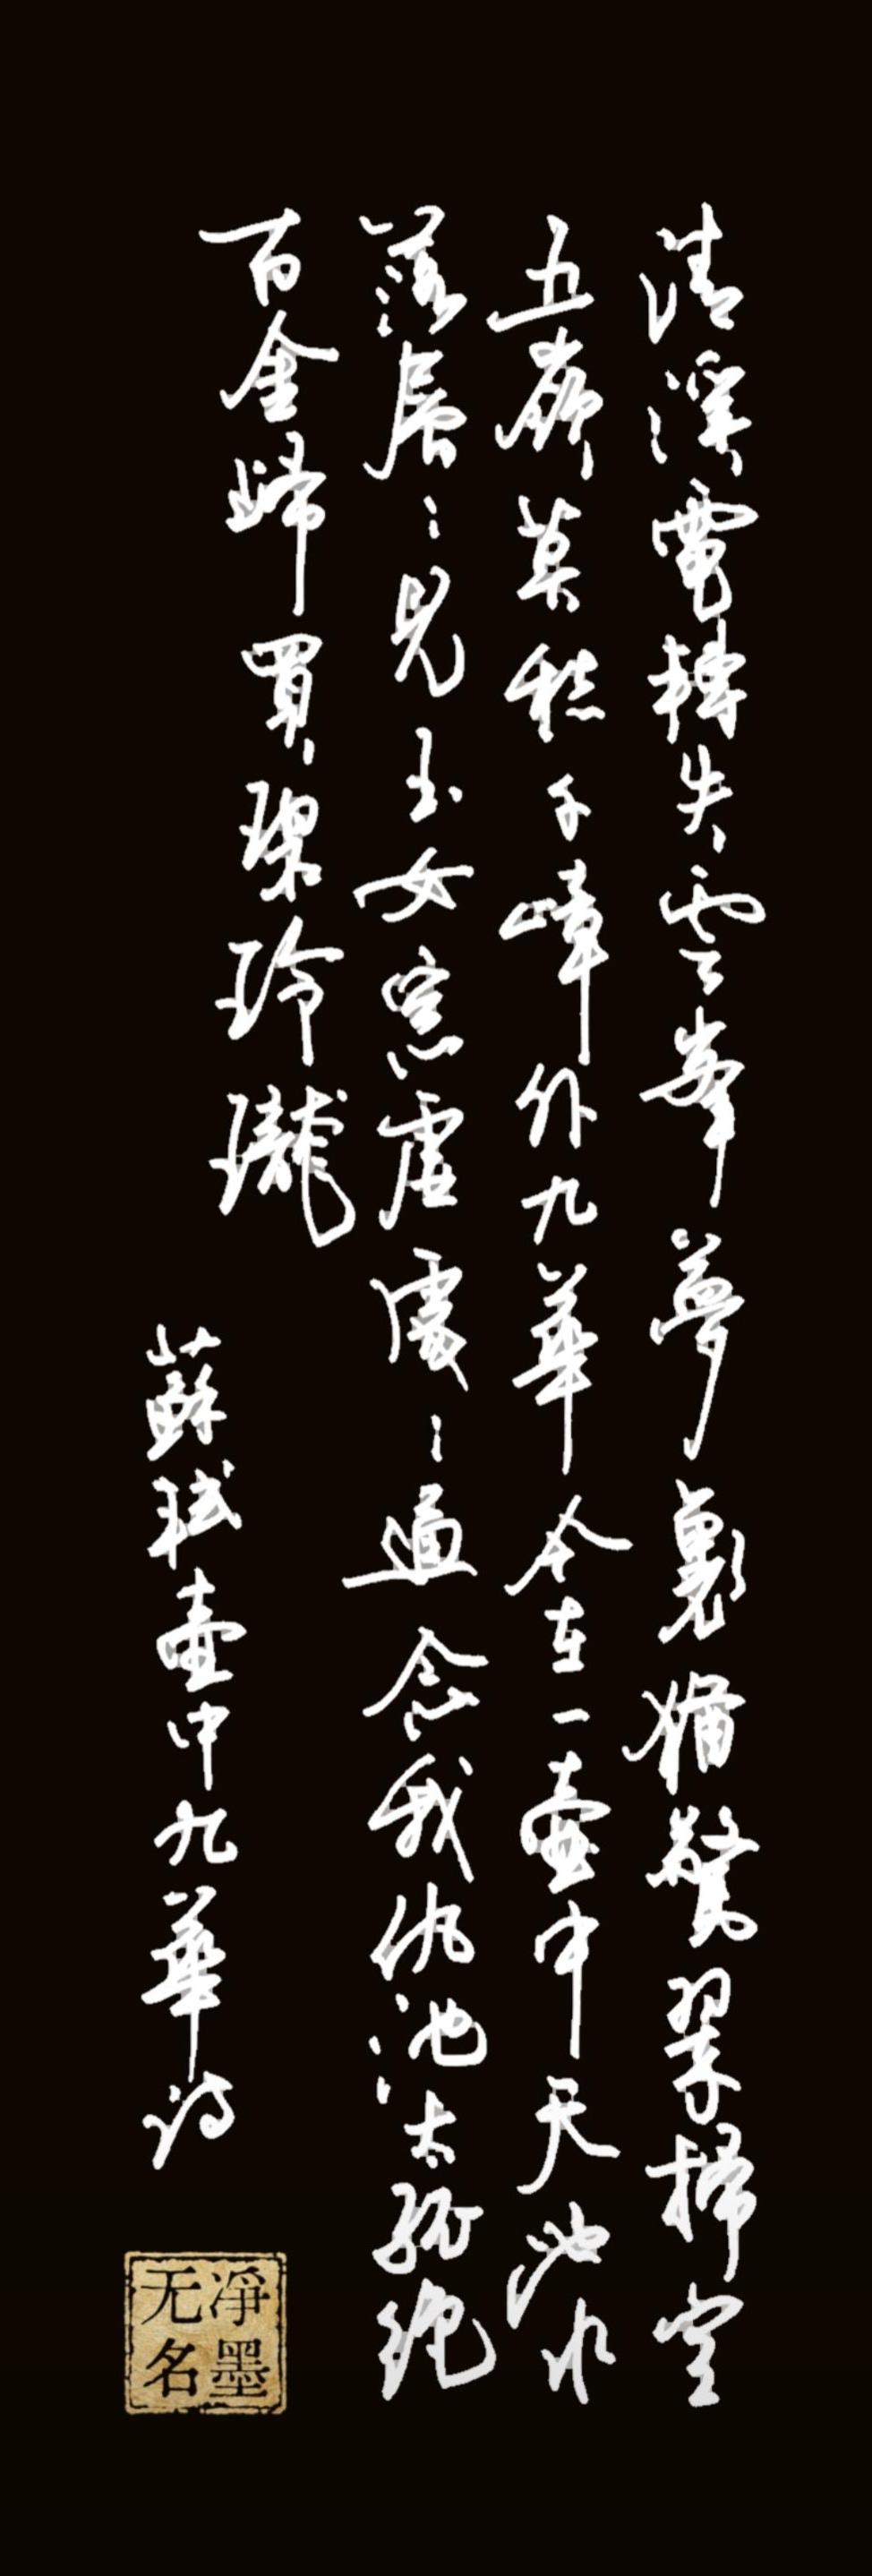 清溪電轉失雲峯夢裏猶驚翠掃空
五嶺莫愁千嶂外九華今在一壺中天池水
落層〻見玉女窓虛處〻通念我仇池太孤絕
百金歸買碧玲瓏
蘇軾壺中九華詩
凈墨
无名